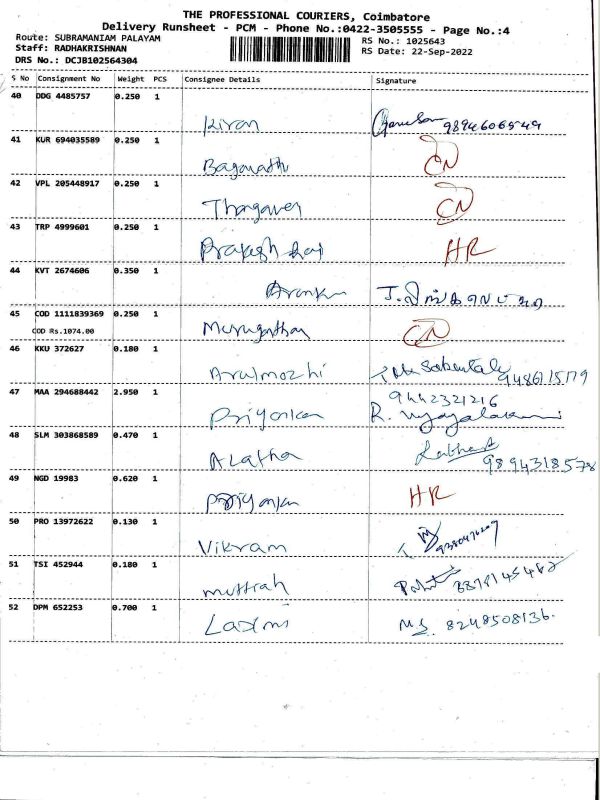 THE PROFESSIONAL COURIERS, Coimbatore
Delivery Runsheet - PCM - Phone No.:0422-3505555 - Page No.:4
Route: SUBRAMANIAM PALAYAM
RS No.: 1025643
Staff: RADHAKRISHNAN
RS Date: 22-Sep-2022
DRS No.: DCJB102564304
S No Consignment No Weight PCS Consignee Details Signature
40 DDG 4485757 0.250 1
Kiran 9894606549
41 KUR 694035589 0.250 1
CN
42 VPL 205448917 0.250 1
Thangavel CN
43 TRP 4999601 0.250 1
Prakash Raj HR
44 KVT 2674606 0.350 1
45 COD 1111839369 0.250 1
COD Rs.1074.00
CN
46 KKU 372627 0.180 1
Arulmozhi 9486115179
47 MAA 294688442 2.950 1
9442321216
Priyanka R. Vijayalakshmi
48 SLM 303868589 0.470 1
Alatha 9894318578
49 NGD 19983 0.620 1
Priyanka HR
50 PRO 13972622 0.130 1
Vikram
51 TSI 452944 0.180 1
muttiah
52 DPM 652253 0.700 1
Laxmi MS. 8248508136.